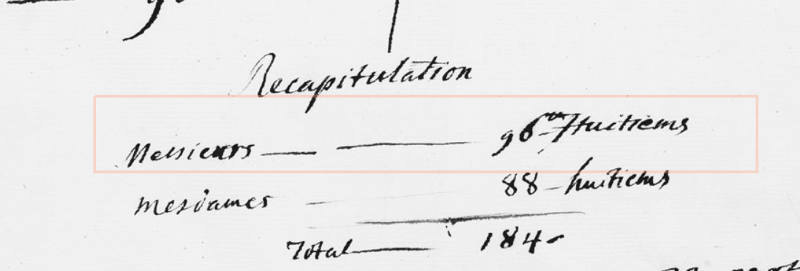 Recapitulation
Messieurs — — 96 huitiems
Mesdames - 88 - huitiems
Total — 184 -